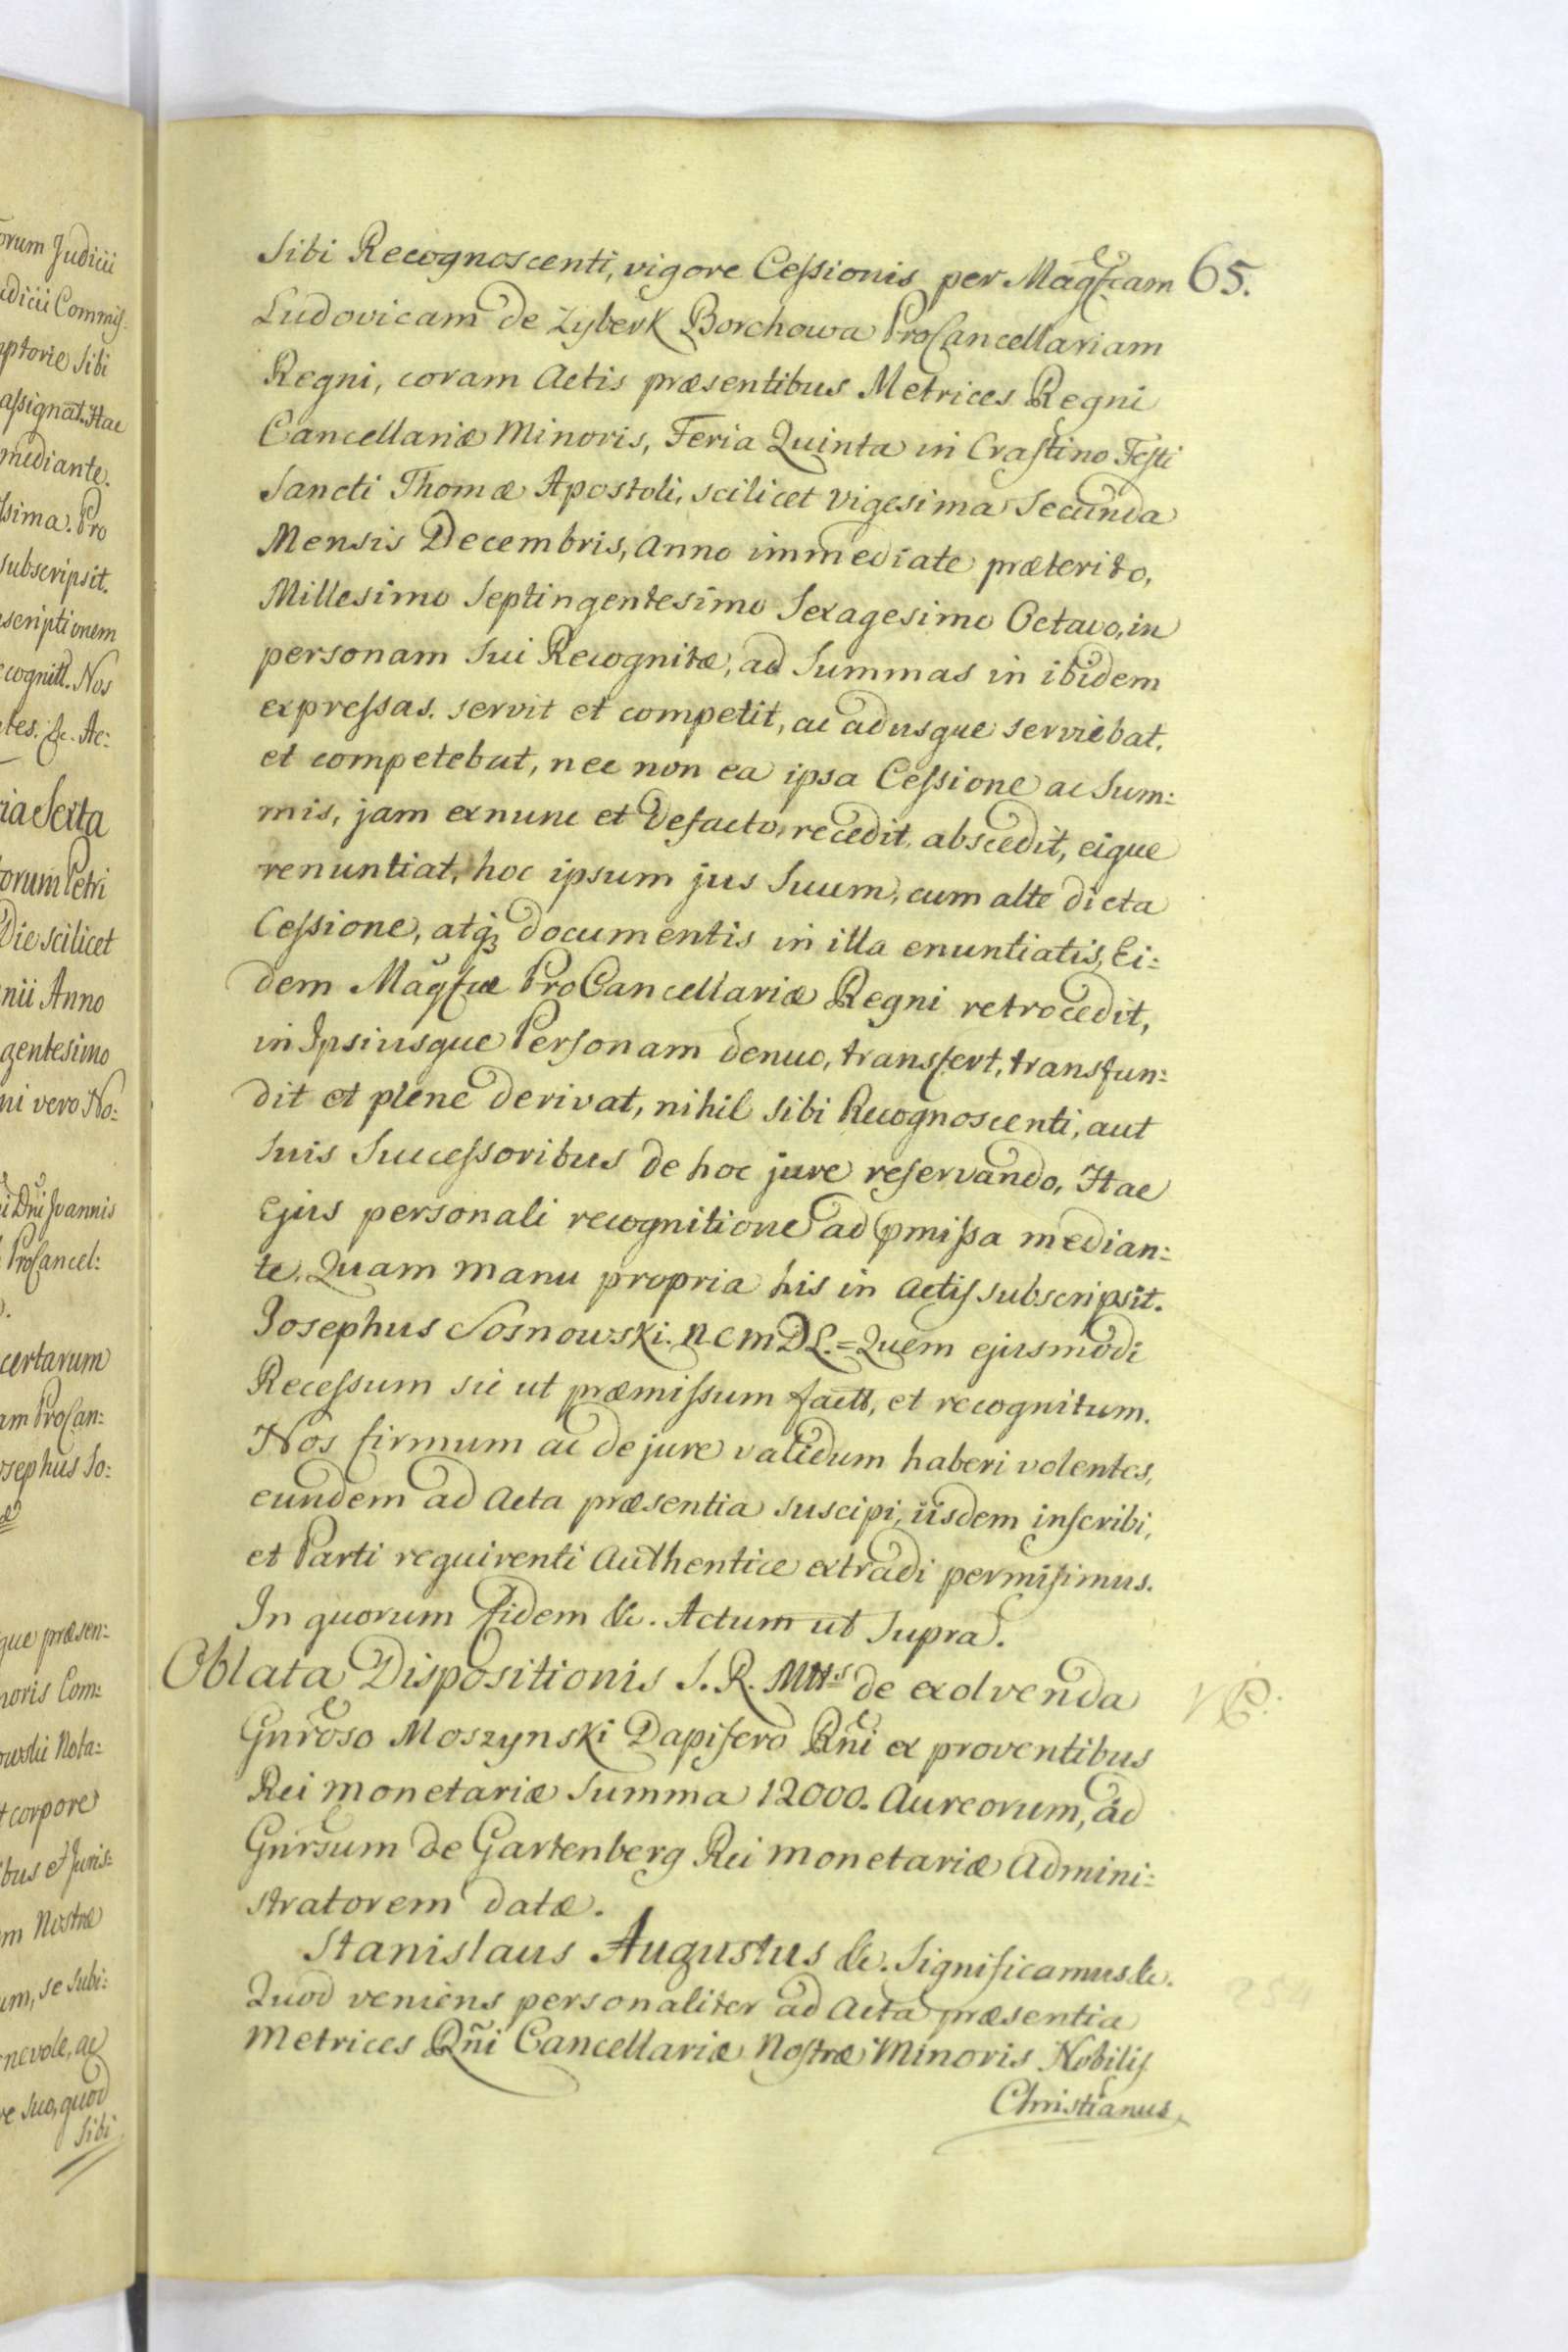 orum Judicii
udicii Commis:
ptorie Sibi
assignat. Hac
mediante.
ssima. Pro
subscripsit.
scriptionem
cognitt. Nos
tes. &c. Ac:
ria Sexta
orum Petri
Die scilicet
nii Anno
gentesimo
ni vero No:
i Dni Joannis
ProCancel:
certarum
am ProCan:
osephus So:
que præsen:
noris Com:
owski Nota:
t corpore
bus et Juris:
m Nostræ
um, se subi:
nevole, ac
re suo, quod
Sibi
65.
Sibi Recognoscenti, vigore Cessionis per Magfcam
Ludovicam de Zyberk Borchowa ProCancellariam
Regni, coram Actis præsentibus Metrices Regni
Cancellariæ Minoris, Feria Quinta in Crastino Festi
Sancti Thomæ Apostoli, scilicet vigesima Secunda
Mensis Decembris, Anno immediate præterito,
Millesimo Septingentesimo Sexagesimo Octavo, in
personam Sui Recognitæ, ad Summas in ibidem
expressas. servit et competit, ac adusque serviebat,
et competebat, nec non ea ipsa Cessione ac Sum:
mis, jam exnunc et Defacto, recedit, abscedit, eique
renuntiat, hoc ipsum jus Suum, cum alte dicta
Cessione, atqꝫ documentis in illa enuntiatis, Ei:
dem Magfcæ ProCancellariæ Regni retrocedit,
in Ipsiusque Personam denuo, transfert, transfun:
dit et plene derivat, nihil Sibi Recognoscenti, aut
Suis Successoribus de hoc jure reservando, Hac
Ejus personali recognitione ad pmissa median:
te. Quam manu propria his in Actis subscripsit.
Josephus Sosnowski. N C M D L. = Quem ejusmodi
Recessum sic ut præmissum factt, et recognitum.
Nos firmum ac de jure validum haberi volentes,
eundem ad Acta præsentia suscipi, iisdem inscribi,
et Parti requirenti Authentice extradi permisimus.
In quorum fidem &c. Actum ut Supra.
Oblata Dispositionis S. R. Mtts de exolvenda
Gnroso Moszynski Dapifero Rñi ex proventibus
Rei monetariæ Summa 12000. Aureorum, ad
Gnrsum de Gartenberg Rei monetariæ Admini:
stratorem datæ.
Stanislaus Augustus &c. Significamus &c.
Quod veniens personaliter ad Acta præsentia
Metrices Rñi Cancellariæ Nostræ Minoris Nobilis
Christianus